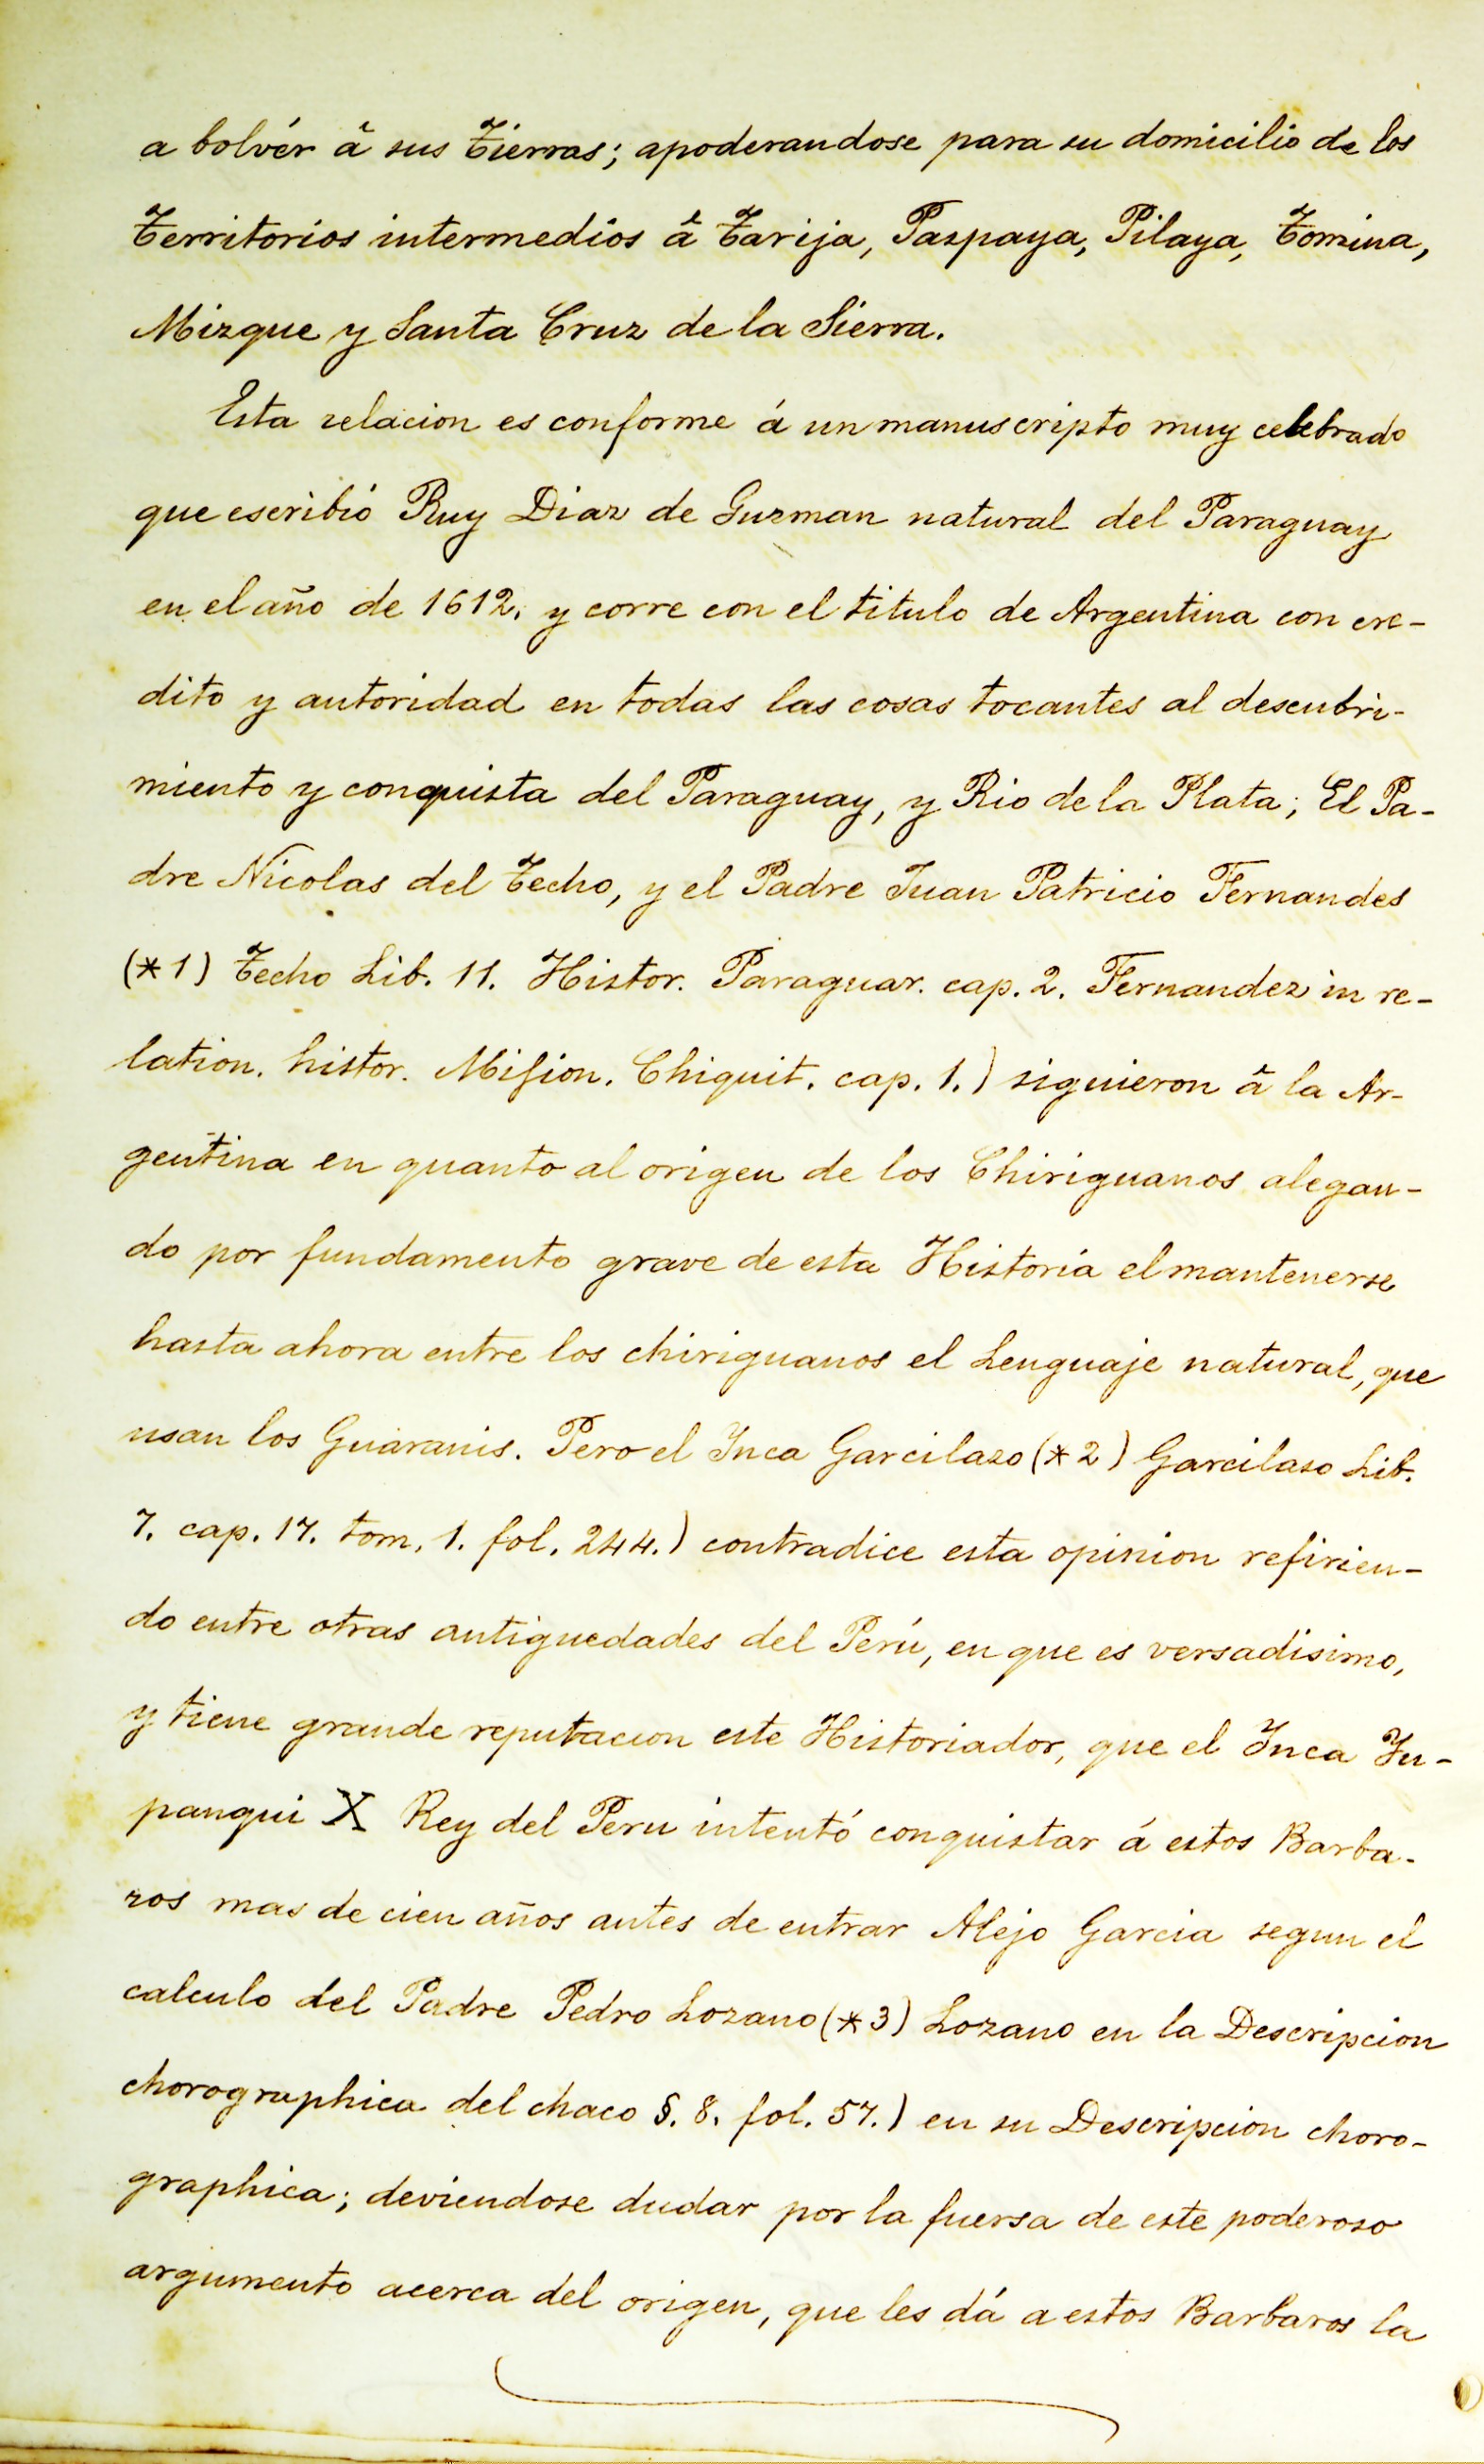 a bolvér â sus Tierras; apoderandose para su domicilio de los
Territorios intermedios â Tarija, Paspaya, Pilaya, Tomina,
Mizque y Santa Cruz de la Sierra.
Esta relacion es conforme á un manuscripto muy celebrado
que escribió Ruy Diaz de Guzman natural del Paraguay
en el año de 1612. y corre con el titulo de Argentina con cre-
dito y autoridad en todas las cosas tocantes al descubri-
miento y conquista del Paraguay, y Rio de la Plata; El Pa-
dre Nicolas del Techo, y el Padre Juan Patricio Fernandes
(*1) Techo Lib. 11. Histor. Paraguar. cap. 2. Fernandez in re-
lation. histor. Mision. Chiquit. cap. 1.) siguieron â la Ar-
gentina en quanto al origen de los Chiriguanos alegan-
do por fundamento grave de esta Historia el mantenerse
hasta ahora entre los chiriguanos el Lenguaje natural, que
usan los Guaranis. Pero el Inca Garcilazo (*2) Garcilaso Lib.
7. cap. 17. tom. 1. fol. 244.) contradice esta opinion refirien-
do entre otras antiguedades del Perú, en que es versadisimo,
y tiene grande reputacion este Historiador, que el Inca Yu-
panqui X Rey del Peru intentó conquistar á estos Barba-
ros mas de cien años antes de entrar Alejo Garcia segun el
calculo del Padre Pedro Lozano (*3) Lozano en la Descripcion
chorographica del chaco §. 8. fol. 57.) en su Descripcion choro-
graphica; deviendose dudar por la fuersa de este poderoso
argumento acerca del origen, que les dá a estos Barbaros la